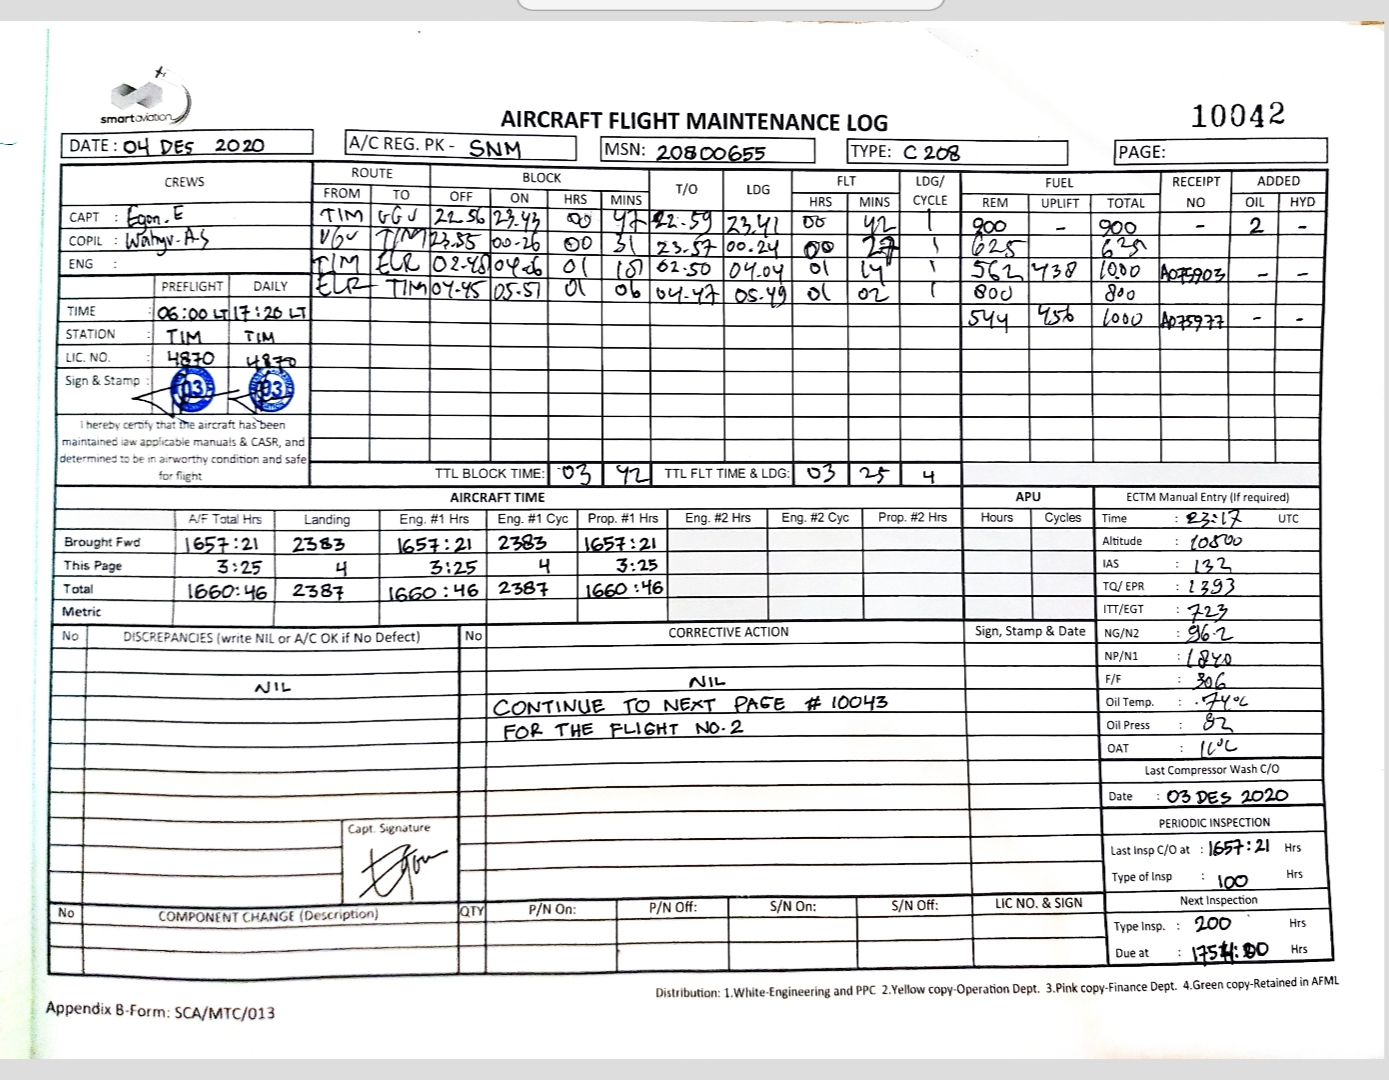 smartaviation
AIRCRAFT FLIGHT MAINTENANCE LOG
10042
DATE : 04 DES 2020
A/C REG. PK - SNM
MSN: 20800655
TYPE: C 208
PAGE:
CREWS
ROUTE BLOCK T/O LDG FLT LDG/ CYCLE FUEL RECEIPT NO ADDED
FROM TO OFF ON HRS MINS HRS MINS REM UPLIFT TOTAL OIL HYD
CAPT : Egon. E
TIM UGU 22.56 23.43 00 47 22.59 23.41 00 42 1 900 - 900 - 2 -
COPIL : Wahyu. AS
UGU TIM 23.55 00.26 00 31 23.57 00.24 00 27 1 625 625
ENG :
TIM ELR 02.48 04.06 01 18 02.50 04.04 01 14 1 562 438 1000 A075903 - -
ELR TIM 04.45 05.51 01 06 04.47 05.49 01 02 1 800 800
544 456 1000 A075977 - -
PREFLIGHT DAILY
TIME : 06:00 LT 17:20 LT
STATION : TIM TIM
LIC. NO. : 4870 4870
Sign & Stamp :
03 03
I hereby certify that the aircraft has been
maintained iaw applicable manuals & CASR, and
determined to be in airworthy condition and safe
for flight
TTL BLOCK TIME: 03 42 TTL FLT TIME & LDG: 03 25 4
AIRCRAFT TIME
APU
A/F Total Hrs Landing Eng. #1 Hrs Eng. #1 Cyc Prop. #1 Hrs Eng. #2 Hrs Eng. #2 Cyc Prop. #2 Hrs Hours Cycles
Brought Fwd 1657:21 2383 1657:21 2383 1657:21
This Page 3:25 4 3:25 4 3:25
Total 1660:46 2387 1660:46 2387 1660:46
Metric
ECTM Manual Entry (If required)
Time : 23:17 UTC
Altitude : 10500
IAS : 132
TQ/ EPR : 1393
ITT/EGT : 723
NG/N2 : 96.2
NP/N1 : 1840
F/F : 306
Oil Temp. : 74°C
Oil Press : 82
OAT : 11°C
Last Compressor Wash C/O
Date : 03 DES 2020
PERIODIC INSPECTION
Last Insp C/O at : 1657:21 Hrs
Type of Insp : 100 Hrs
Next Inspection
Type Insp. : 200 Hrs
Due at : Hrs
No DISCREPANCIES (write NIL or A/C OK if No Defect) No CORRECTIVE ACTION Sign, Stamp & Date
NIL
NIL
CONTINUE TO NEXT PAGE # 10043
FOR THE FLIGHT NO.2
Capt. Signature
No COMPONENT CHANGE (Description) QTY P/N On: P/N Off: S/N On: S/N Off: LIC NO. & SIGN
Distribution: 1.White-Engineering and PPC 2.Yellow copy-Operation Dept. 3.Pink copy-Finance Dept. 4.Green copy-Retained in AFML
Appendix B-Form: SCA/MTC/013